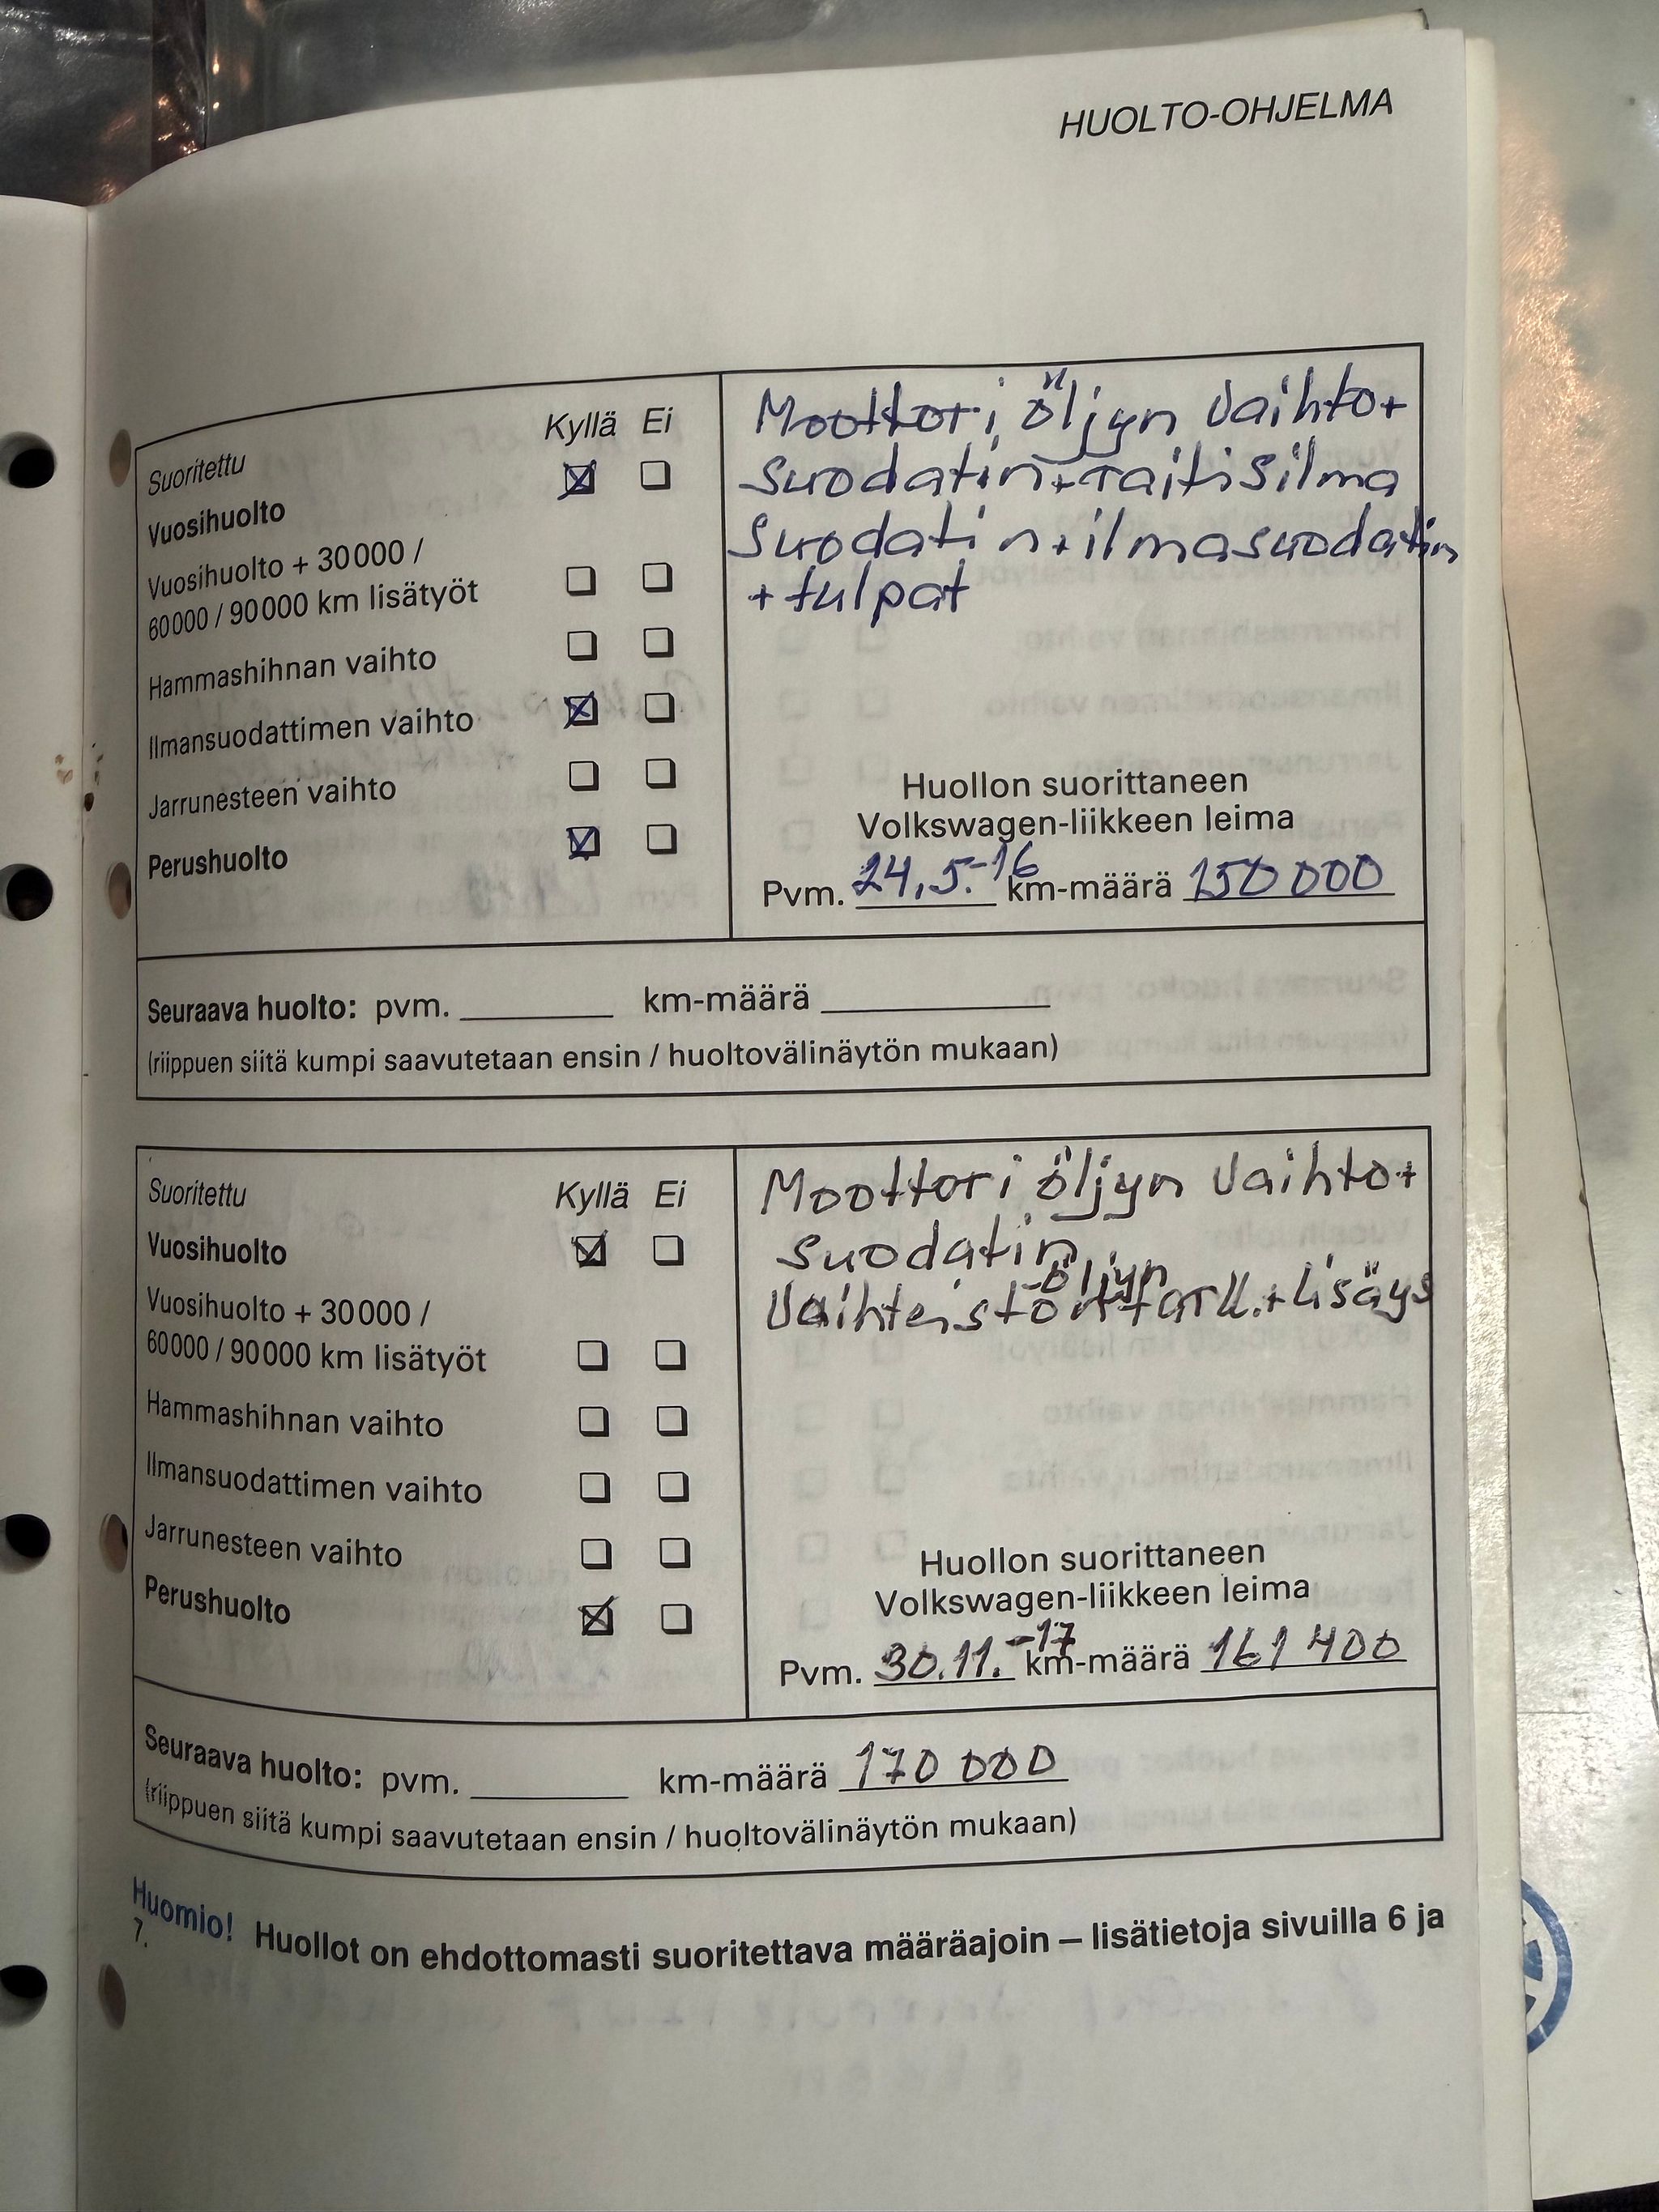 HUOLTO-OHJELMA
Suoritettu Kyllä Ei
Vuosihuolto ☒ ☐
Vuosihuolto + 30000 /
60000 / 90000 km lisätyöt ☐ ☐
Hammashihnan vaihto ☐ ☐
Ilmansuodattimen vaihto ☒ ☐
Jarrunesteen vaihto ☐ ☐
Perushuolto ☒ ☐
Moottori öljyn vaihto+
suodatin+raitisilma
suodatin+ilmasuodatin
+tulpat
Huollon suorittaneen
Volkswagen-liikkeen leima
Pvm. 24.5.-16 km-määrä 150 000
Seuraava huolto: pvm. ________ km-määrä ________
(riippuen siitä kumpi saavutetaan ensin / huoltovälinäytön mukaan)
Suoritettu Kyllä Ei
Vuosihuolto ☒ ☐
Vuosihuolto + 30000 /
60000 / 90000 km lisätyöt ☐ ☐
Hammashihnan vaihto ☐ ☐
Ilmansuodattimen vaihto ☐ ☐
Jarrunesteen vaihto ☐ ☐
Perushuolto ☒ ☐
Moottori öljyn vaihto+
suodatin
-öljyn
Vaihteistön tark.+lisäys
Huollon suorittaneen
Volkswagen-liikkeen leima
Pvm. 30.11.-17 km-määrä 161 400
Seuraava huolto: pvm. ________ km-määrä 170 000
(riippuen siitä kumpi saavutetaan ensin / huoltovälinäytön mukaan)
Huomio! Huollot on ehdottomasti suoritettava määräajoin – lisätietoja sivuilla 6 ja
7.